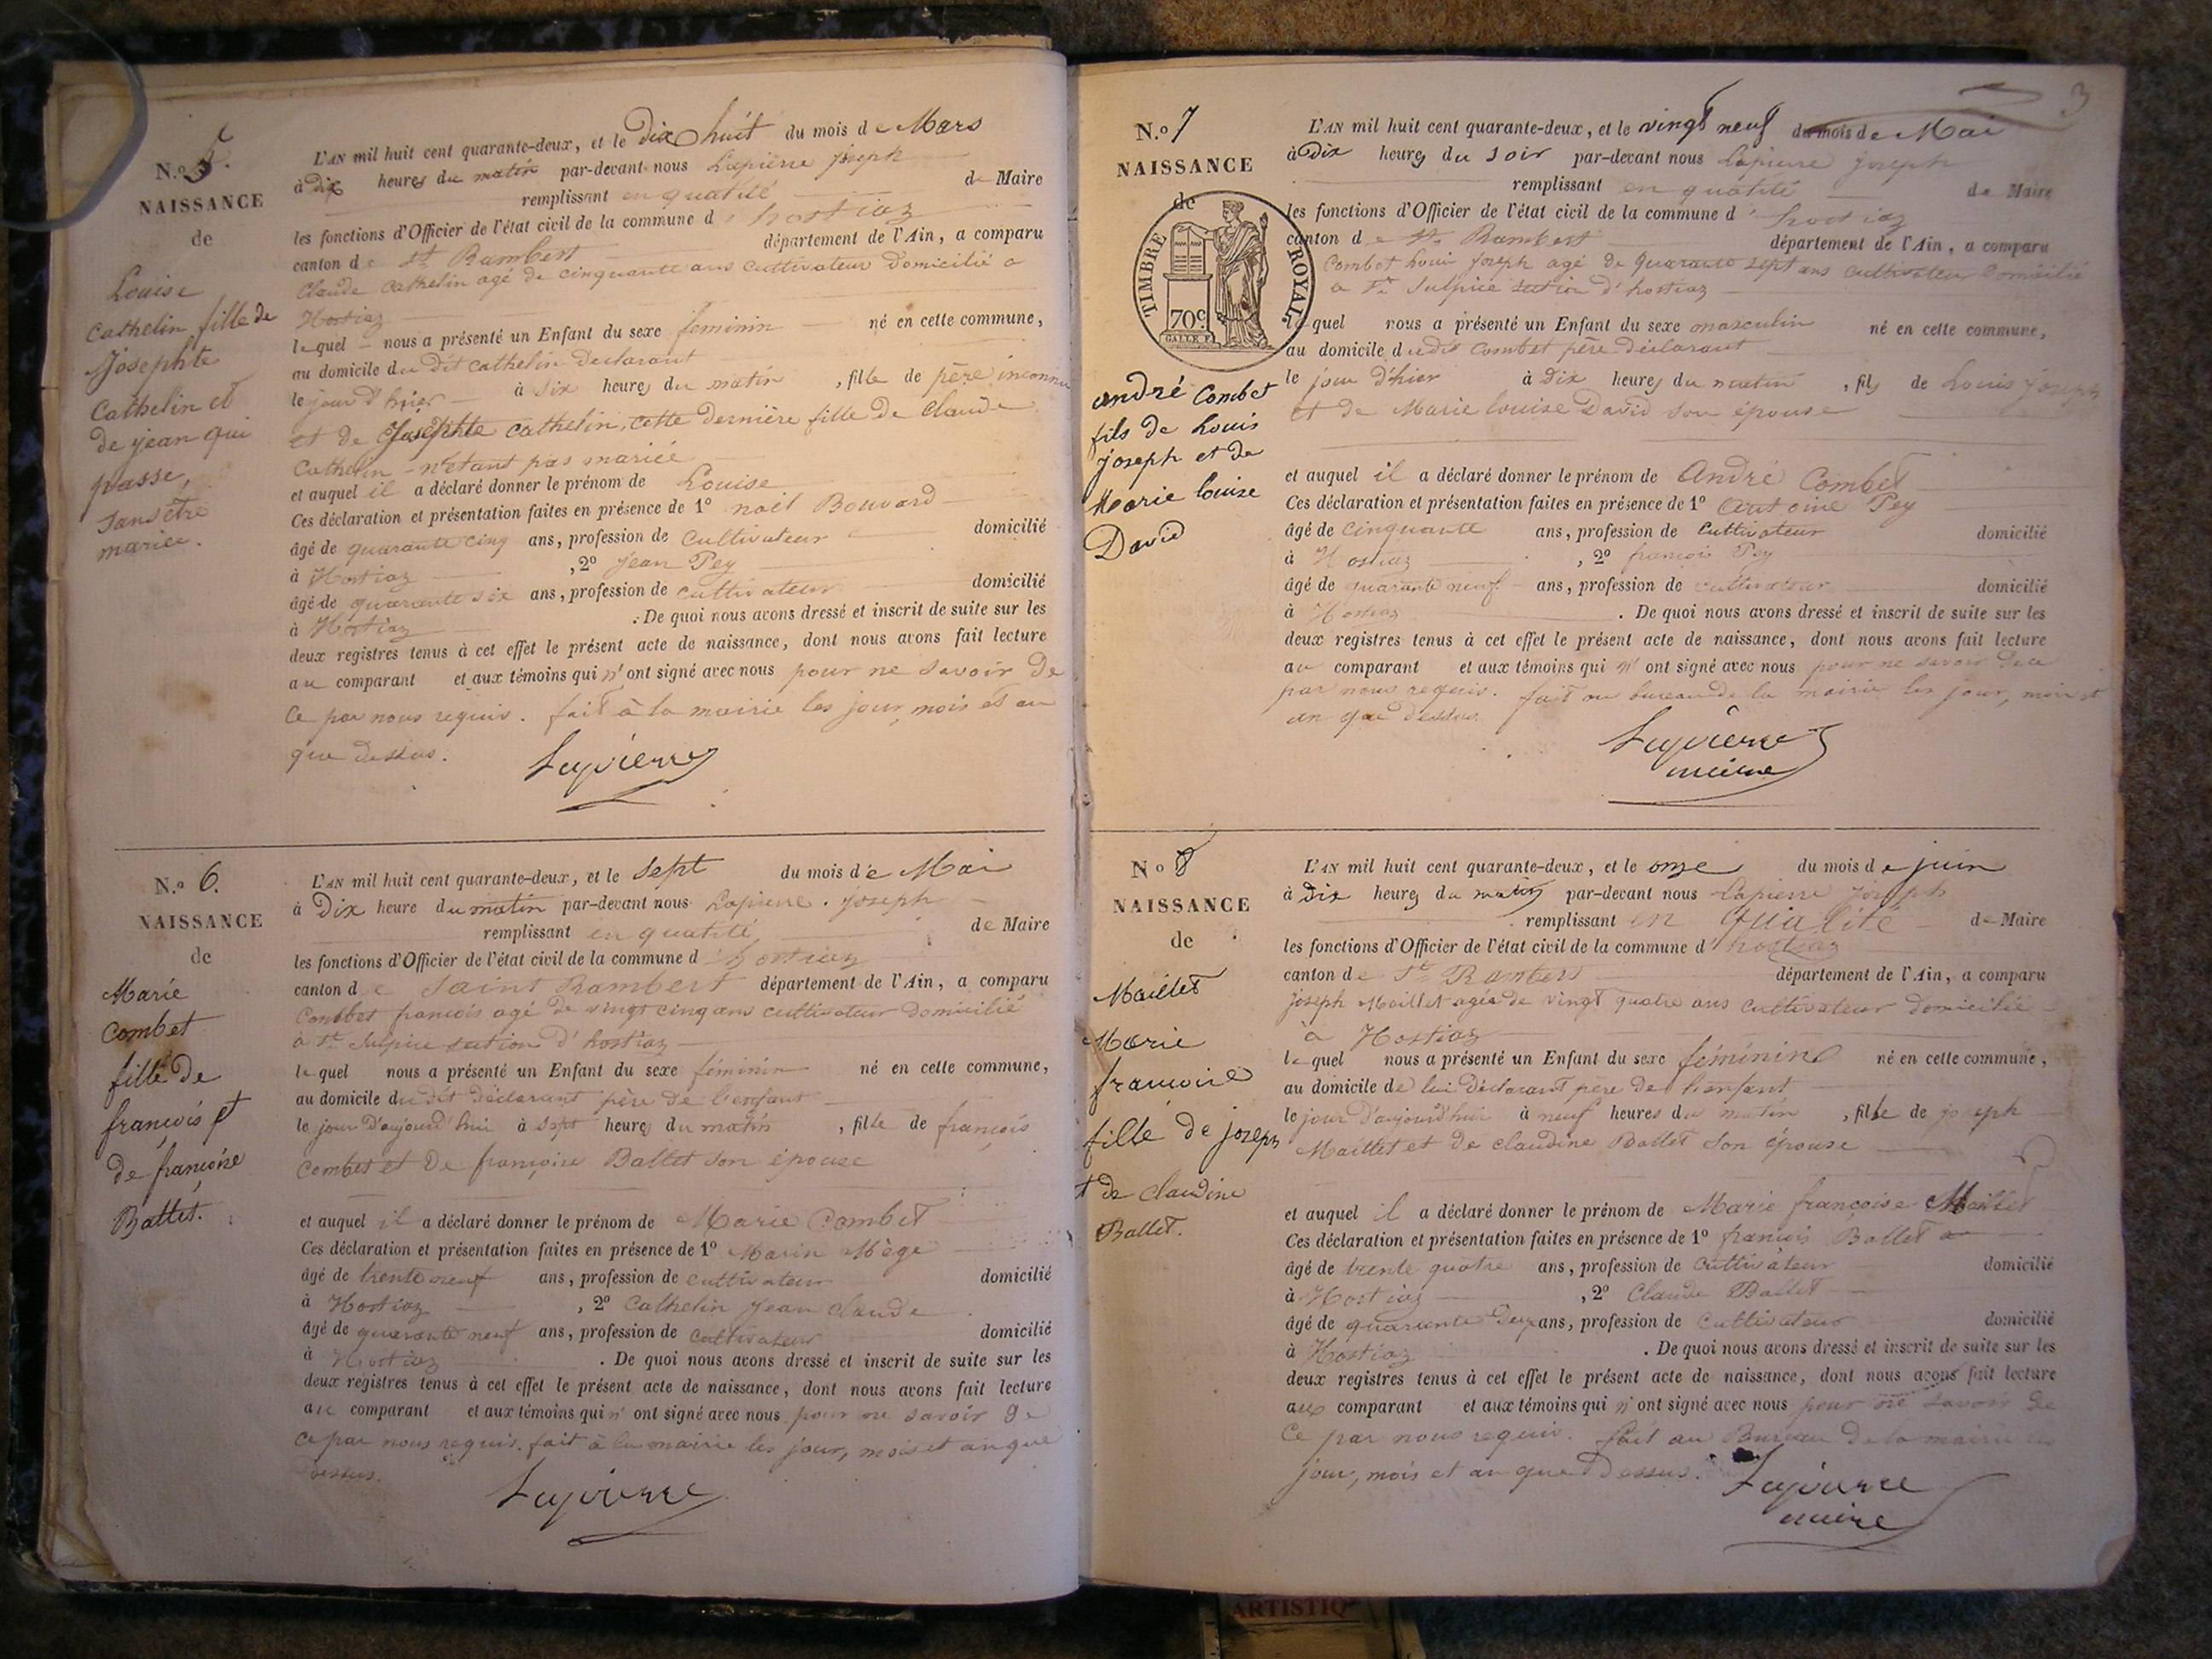 N.o 5.
NAISSANCE
de
Louise
Cathelin fille de
Josephte
Cathelin et
de jean qui
passe,
sans être
mariée.
L'AN mil huit cent quarante-deux, et le Dix huit du mois de Mars
à Dix heures du matin par-devant nous Lapierre joseph
remplissant en qualité de Maire
les fonctions d'Officier de l'état civil de la commune d' hostiaz
canton de st Rambert département de l'Ain, a comparu
Claude Cathelin agé de cinquante ans cultivateur Domicilié a
Hostiaz
lequel nous a présenté un Enfant du sexe feminin né en cette commune,
au domicile du Dit Cathelin Declarant
le jour d'hier à six heures du matin, fille de père inconnu
et de Josephte Cathelin, cette dernière fille de Claude
Cathelin - n'etant pas mariée
et auquel il a déclaré donner le prénom de Louise
Ces déclaration et présentation faites en présence de 1o noël Bouvard
âgé de quarante cinq ans, profession de Cultivateur domicilié
à Hostiaz, 2o Jean Pey
âgé de quarante six ans, profession de cultivateur domicilié
à Hostiaz. De quoi nous avons dressé et inscrit de suite sur les
deux registres tenus à cet effet le présent acte de naissance, dont nous avons fait lecture
au comparant et aux témoins qui n'ont signé avec nous pour ne savoir De
Ce par nous requis. fait à la mairie les jour, mois et an
que dessus.
Lapierre
N.o 6.
NAISSANCE
de
Marie
Combet
fille de
françois et
de françoise
Ballet.
L'AN mil huit cent quarante-deux, et le sept du mois de Mai
à Dix heure du matin par-devant nous Lapierre joseph
remplissant en qualité de Maire
les fonctions d'Officier de l'état civil de la commune d' hostiaz
canton de Saint Rambert département de l'Ain, a comparu
Combet françois agé de vingt cinq ans cultivateur domicilié
a St Sulpice section d'hostiaz
lequel nous a présenté un Enfant du sexe féminin né en cette commune,
au domicile du dit déclarant père de l'enfant
le jour D'aujourd'hui à sept heures du matin, fille de françois
Combet et De françoise Ballet son épouse
et auquel il a déclaré donner le prénom de Marie Combet
Ces déclaration et présentation faites en présence de 1o Marin Mège
âgé de trente neuf ans, profession de cultivateur domicilié
à Hostiaz, 2o Cathelin Jean Claude
âgé de quarante neuf ans, profession de Cultivateur domicilié
à Hostiaz. De quoi nous avons dressé et inscrit de suite sur les
deux registres tenus à cet effet le présent acte de naissance, dont nous avons fait lecture
au comparant et aux témoins qui n'ont signé avec nous pour ne savoir De
Ce par nous requis. fait à la mairie les jour, mois et an que
dessus.
Lapierre
3
N.o 7
NAISSANCE
de
TIMBRE ROYAL
70c.
andré Combet
fils de Louis
joseph et de
Marie louise
David
L'AN mil huit cent quarante-deux, et le vingt neuf du mois de Mai
à Dix heures du soir par-devant nous Lapierre joseph
remplissant en qualité de Maire
les fonctions d'Officier de l'état civil de la commune d' hostiaz
canton de St Rambert département de l'Ain, a comparu
Combet Louis Joseph agé de quarante sept ans cultivateur Domicilié
a St Sulpice section d'hostiaz
lequel nous a présenté un Enfant du sexe masculin né en cette commune,
au domicile du dit Combet père déclarant
le jour d'hier à Dix heures du matin, fils de Louis Joseph
et de Marie louise David son épouse
et auquel il a déclaré donner le prénom de André Combet
Ces déclaration et présentation faites en présence de 1o Antoine Pey
âgé de Cinquante ans, profession de Cultivateur domicilié
à Hostiaz, 2o françois Pey
âgé de quarante neuf ans, profession de cultivateur domicilié
à Hostiaz. De quoi nous avons dressé et inscrit de suite sur les
deux registres tenus à cet effet le présent acte de naissance, dont nous avons fait lecture
au comparant et aux témoins qui n'ont signé avec nous pour ne savoir de ce
par nous requis. fait au bureau de la mairie les jour, mois et
an que dessus.
Lapierre
maire
No 8
NAISSANCE
de
Maillet
Marie
françoise
fille de joseph
et de Claudine
Ballet.
L'AN mil huit cent quarante-deux, et le onze du mois de juin
à Dix heures du matin par-devant nous Lapierre Joseph
remplissant en qualité de Maire
les fonctions d'Officier de l'état civil de la commune d' hostiaz
canton de St Rambert département de l'Ain, a comparu
Joseph Maillet agée de vingt quatre ans cultivateur domicilié
à Hostiaz
lequel nous a présenté un Enfant du sexe féminin né en cette commune,
au domicile de lui Déclarant père de l'enfant
le jour D'aujourd'hui à neuf heures du matin, fille de joseph
Maillet et De claudine Ballet son épouse
et auquel il a déclaré donner le prénom de Marie françoise Maillet
Ces déclaration et présentation faites en présence de 1o françois Ballet
âgé de trente quatre ans, profession de Cultivateur domicilié
à Hostiaz, 2o Claude Ballet
âgé de quarante Deux ans, profession de Cultivateur domicilié
à Hostiaz. De quoi nous avons dressé et inscrit de suite sur les
deux registres tenus à cet effet le présent acte de naissance, dont nous avons fait lecture
aux comparant et aux témoins qui n'ont signé avec nous pour ne savoir De
Ce par nous requis. fait au Bureau De la mairie les
jour, mois et an que Dessus.
Lapierre
maire
ARTISTIQ